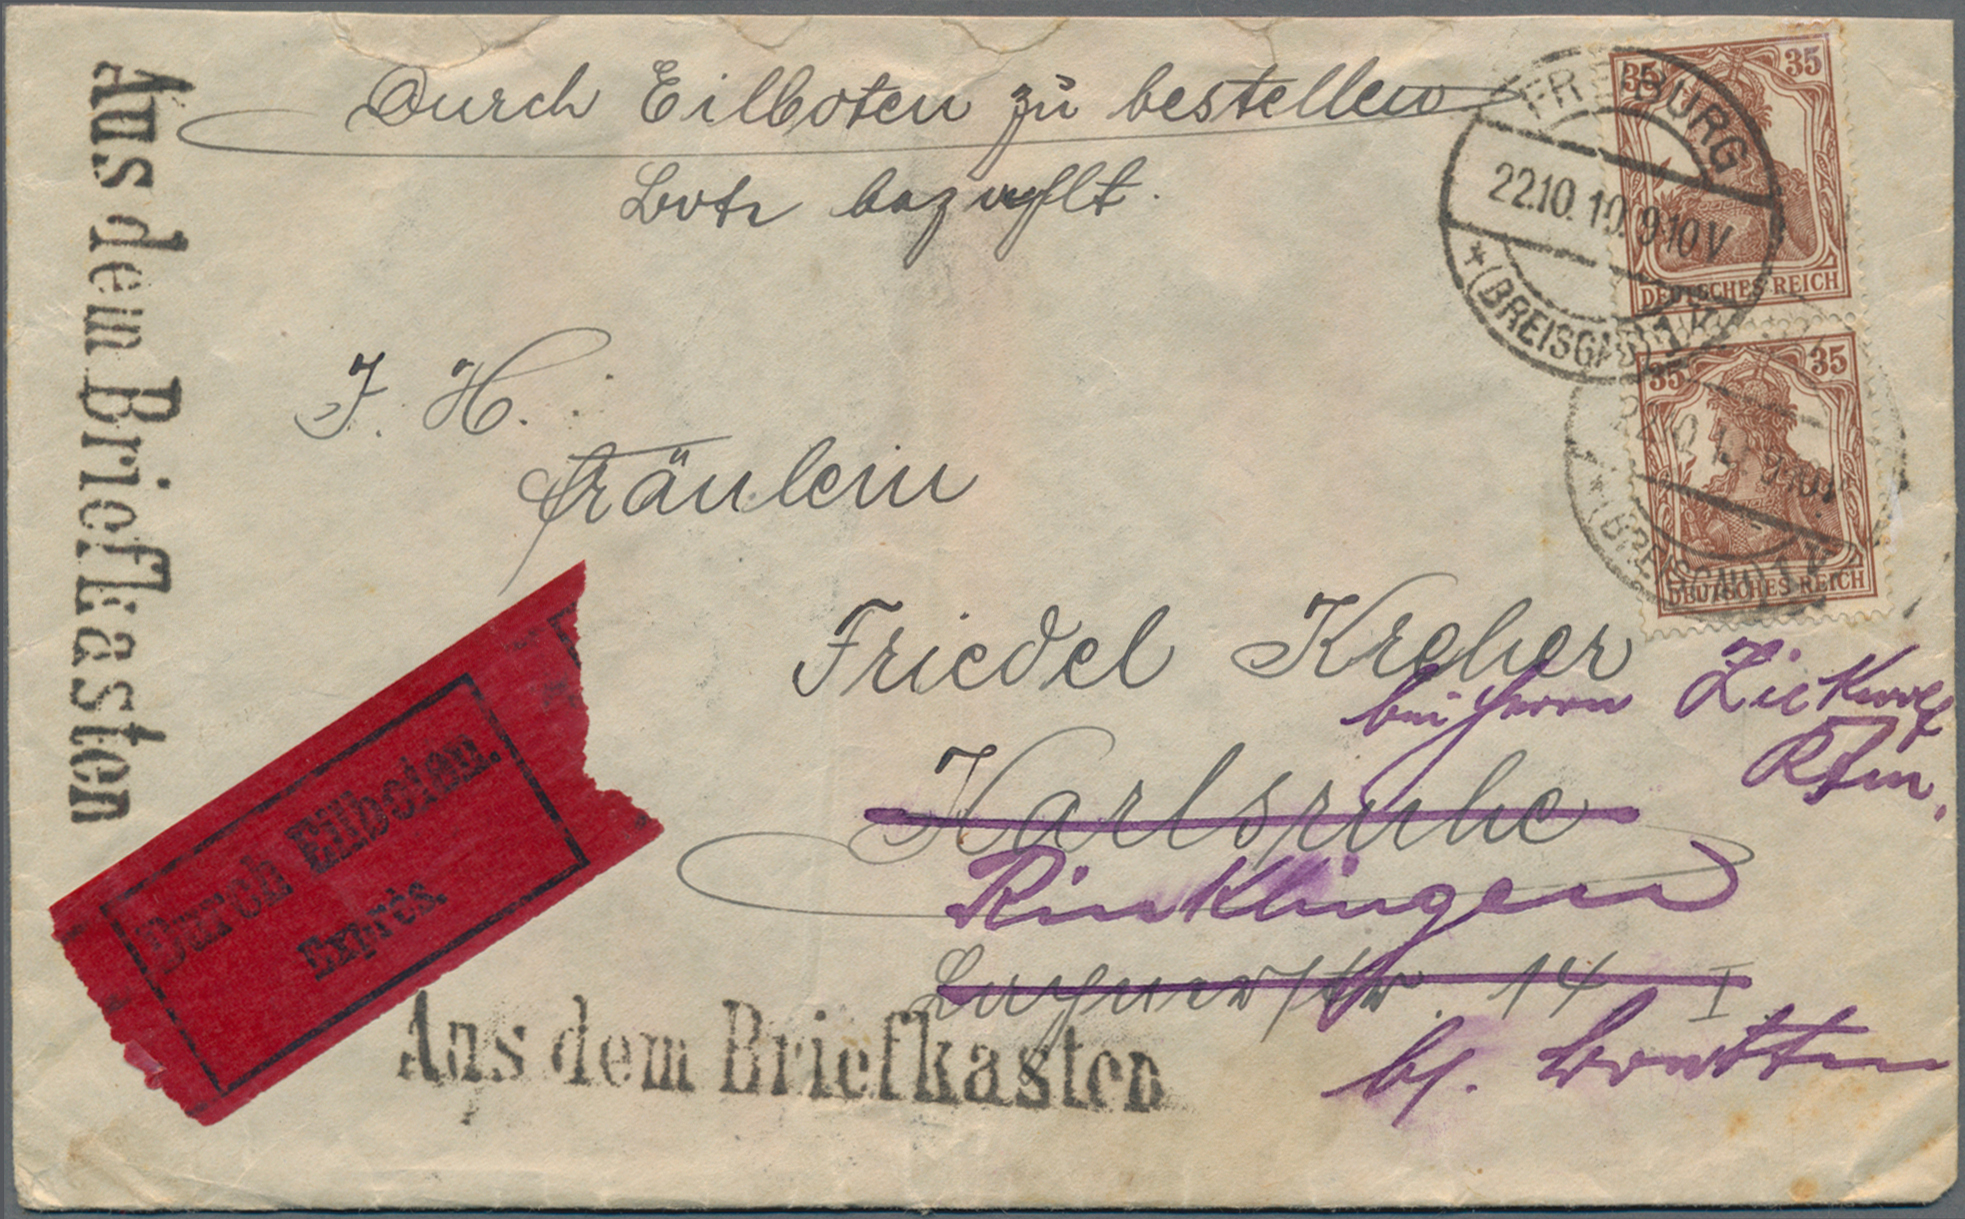 Aus dem Briefkasten
Durch Eilboten zu bestellen
Bote bezahlt.
FREIBURG
22.10.19. 9-10 V
* (BREISGAU) 1
35 35
DEUTSCHES REICH
35 35
DEUTSCHES REICH
(BREISGAU) 1
J. H.
Fräulein
Friedel Kreher
bei Herrn
Kfm.
Karlsruhe
Rinklingen
14 I
b/. Bretten
Durch Eilboten.
Exprès.
Aus dem Briefkasten